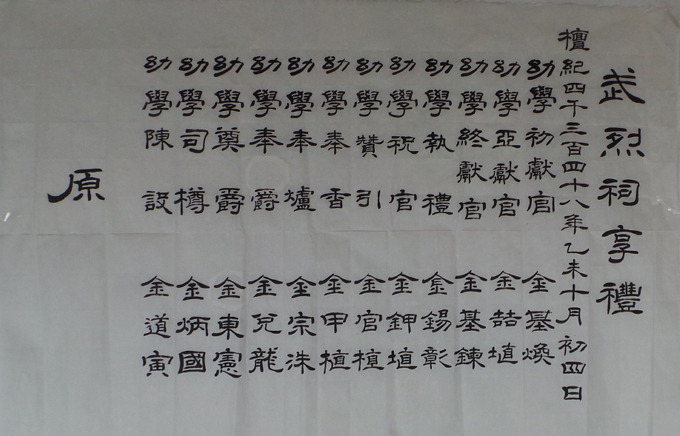 武烈祠享禮
檀紀四千三百四十八年乙未十月初四日
幼學初獻官 金基煥
幼學亞獻官 金喆埴
幼學終獻官 金基鍊
幼學執禮 金錫彰
幼學祝官 金鉀埴
幼學贊引 金官植
幼學奉香 金甲植
幼學奉爐 金宗洙
幼學奉爵 金兌龍
幼學奠爵 金東憲
幼學司樽 金炳國
幼學陳設 金道寅
原